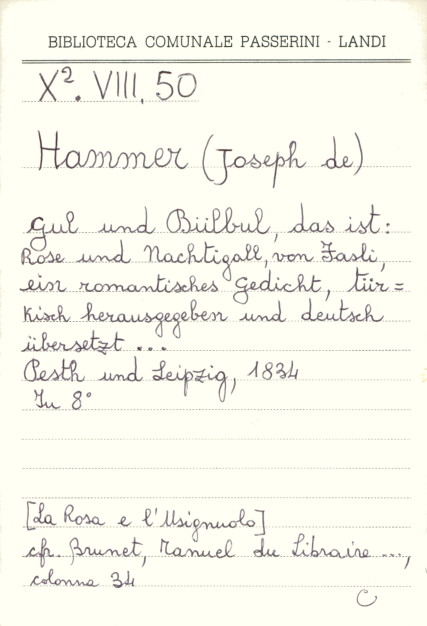 BIBLIOTECA COMUNALE PASSERINI - LANDI
X². VIII, 50
Hammer (Joseph de)
Gul und Bülbul, das ist:
Rose und Nachtigall, von Fasli,
ein romantisches Gedicht, tür=
kisch herausgegeben und deutsch
übersetzt ...
Pesth und Leipzig, 1834
In 8°
[La Rosa e l'Usignuolo]
cfr. Brunet, Manuel du Libraire ...,
colonna 34
C